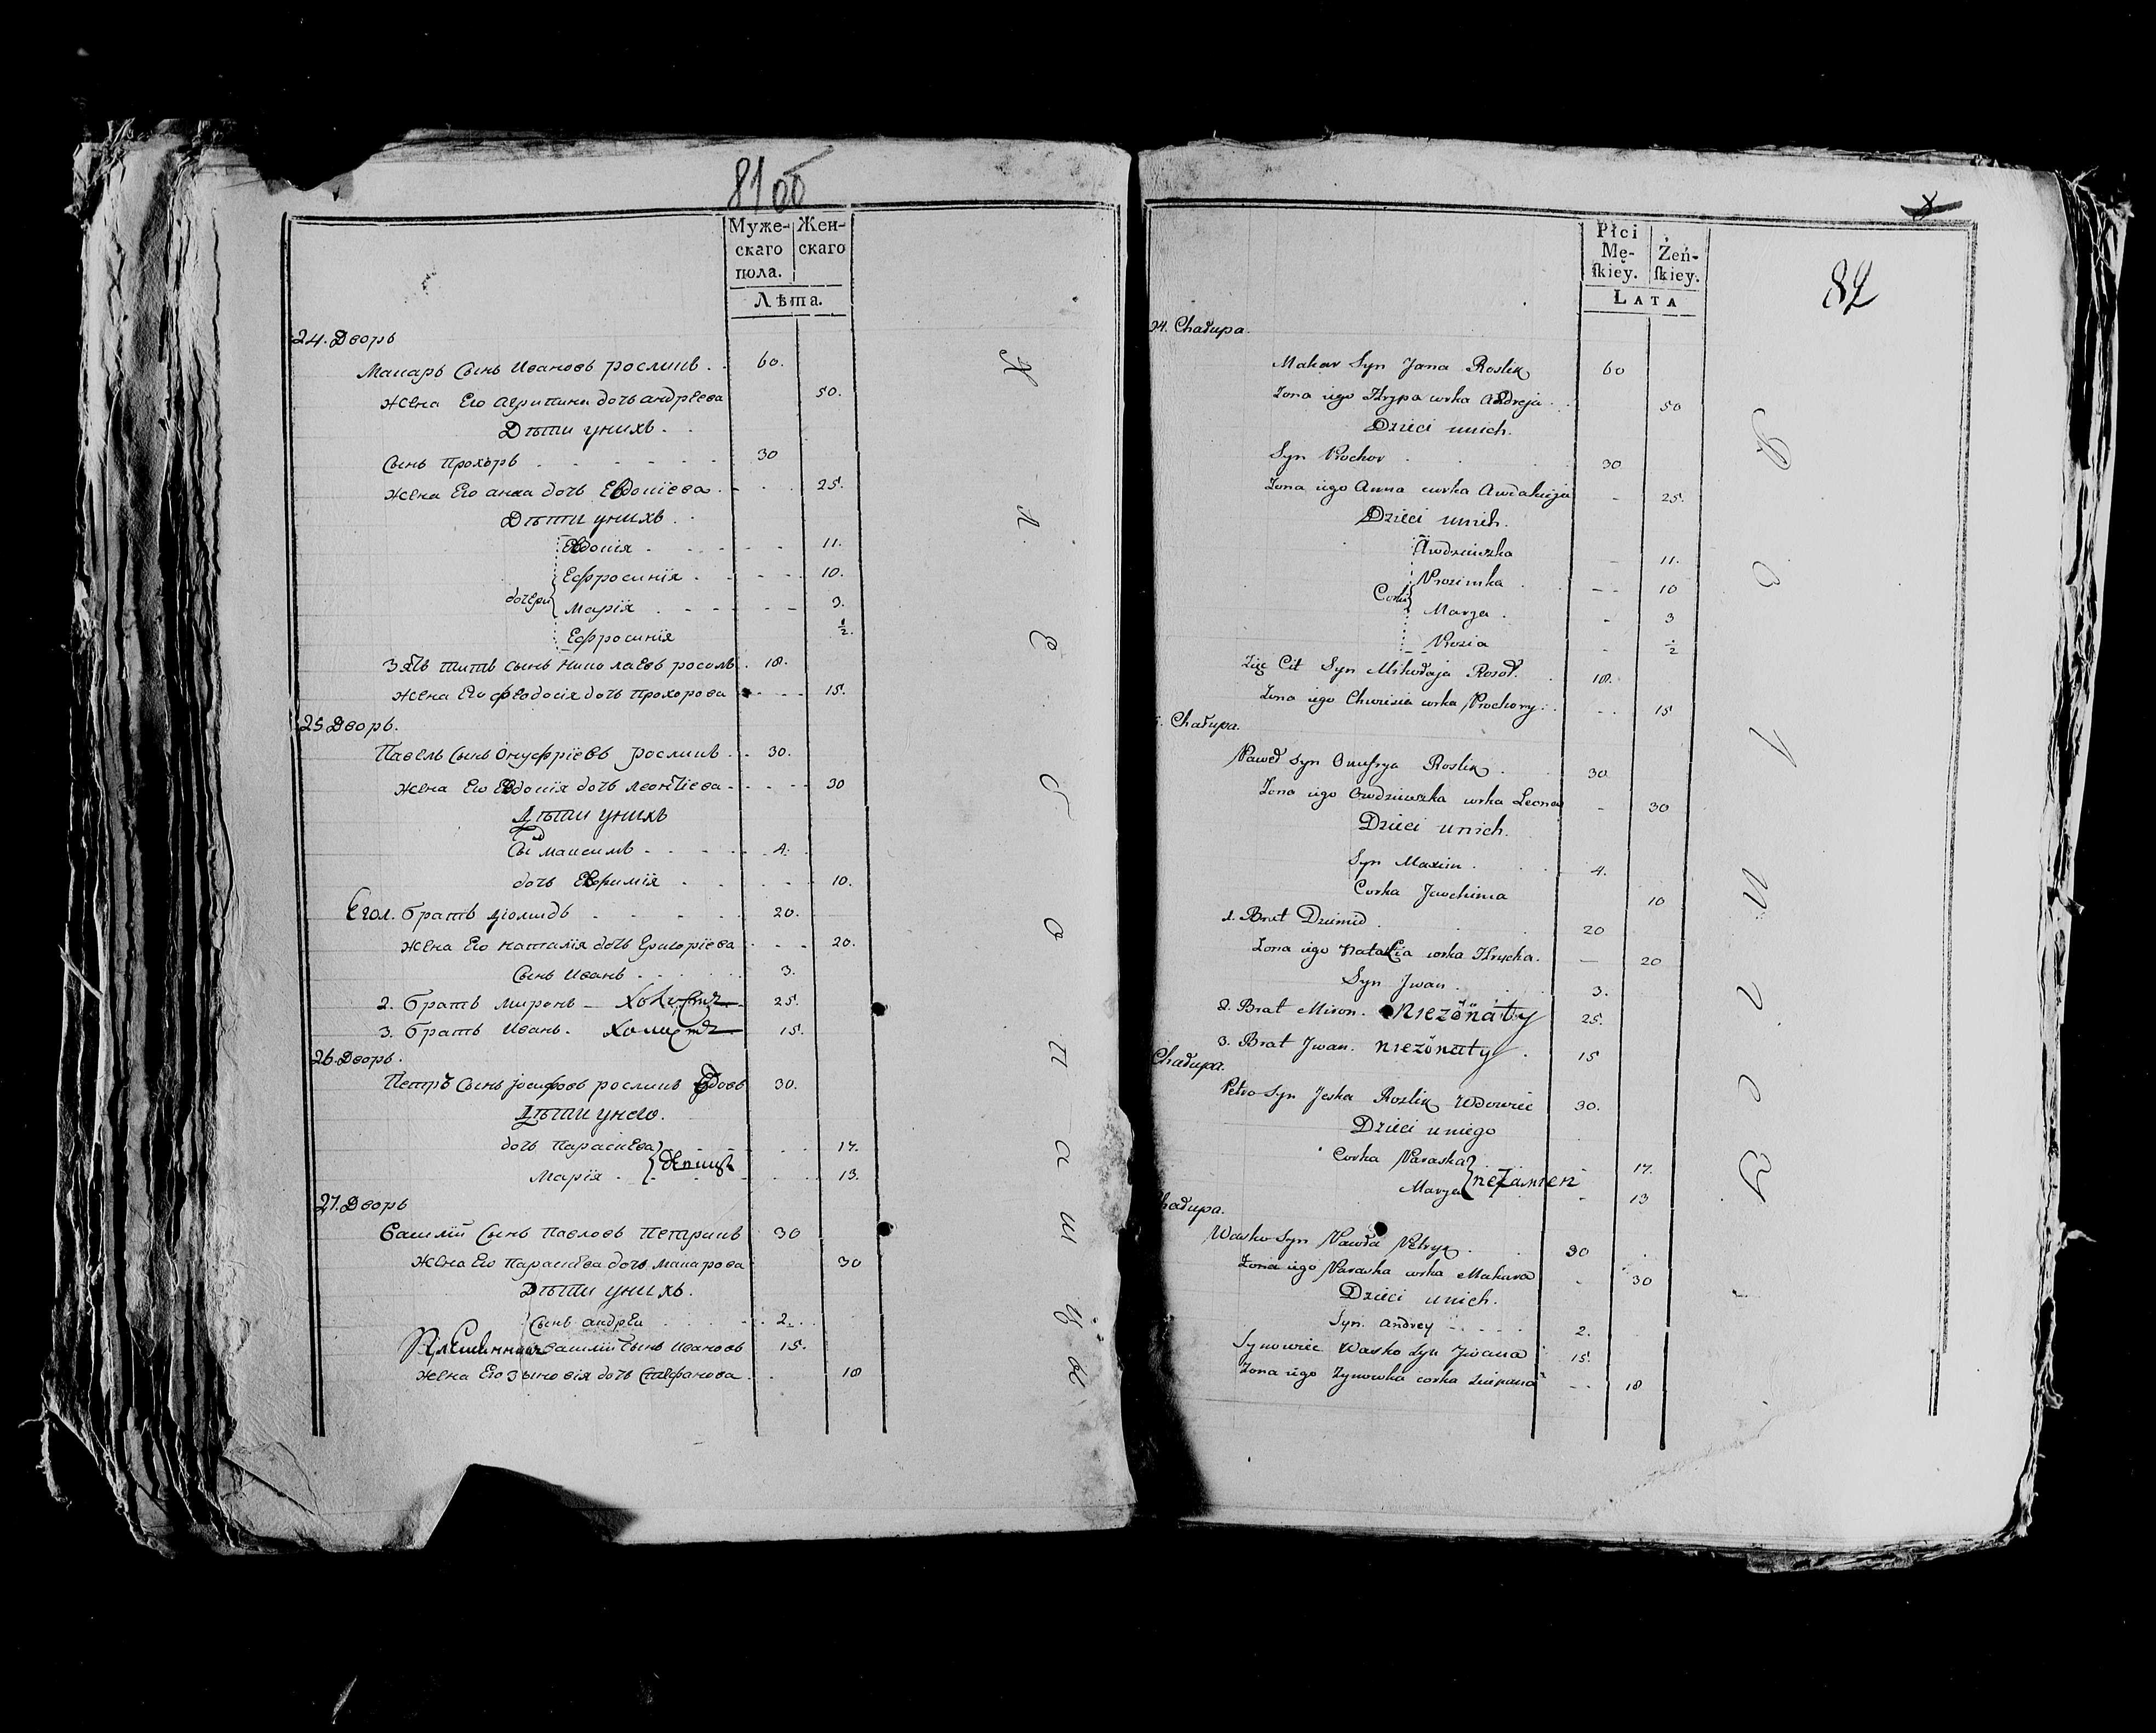 81об
Муже-
скаго
пола.
Жен-
скаго
Лѣта.
24. Дворъ
Макаръ Сынъ Ивановъ росликъ . 60.
жена Его агрипина дочь андреева 50.
Дѣти унихъ .
Сынъ Прохоръ 30
жена Его анна дочь Евдокіева . 25.
Дѣти унихъ .
Евдокія . 11.
Ефросинія . 10.
дочери Марія . 3.
Ефросинія ½.
Зять титъ сынъ николаевъ росолъ . 18.
жена Его феодосія дочь прохорова 15.
25 Дворъ.
Павелъ Сынъ Онуфріевъ росликъ . 30.
жена Его Евдокія дочь леонтіева . 30
Дѣти унихъ
Сы максимъ . 4.
дочь Евфимія . 10.
Его 1. братъ діомидъ 20.
жена Его наталія дочь григоріева 20.
Сынъ Иванъ . 3.
2. братъ миронъ – холостъ 25.
3. братъ Иванъ . холостъ 15.
26. Дворъ .
Петръ Сынъ іосифовъ росликъ вдовъ 30.
Дѣти унего .
дочь параскева 17.
Марія . 13.
27. Дворъ
василій Сынъ павловъ петрикъ 30
жена Его параскева дочь макарова 30
Дѣти унихъ .
Сынъ андреи 2.
Племянникъ василій Сынъ Ивановъ 15.
жена Его зыновія дочь Стефанова . 18
Х л е б о п а ш ц ы
82
Płci
Mę-
ſkiey.
Żeń-
ſkiey.
LATA
24. Chałupa.
Makar Syn Jana Roslik 60
Zona iego Hrypa corka Andreja 50
Dzieci unich.
Syn Prochor 30
Zona iego Anna corka Awdakieja 25.
Dzieci unich.
Awdziuszka 11.
Prosimka 10
Corki Marya . 3
Prosia ½
Zięć Cit Syn Mikołaja Rosoł . 18.
Zona iego Chwiesia corka Prochory 15
Chałupa.
Paweł Syn Onufrya Roslik . 30
Zona iego Owdziuszka corka Leona 30
Dzieci unich.
Syn Maxim . 4.
Corka Jwochima 10
1. Brat Dziemid . 20
Zona iego Natalia corka Hrycha . 20
Syn Jwan . 3.
2. Brat Miron . niezonaty 25.
3. Brat Jwan . niezonaty . 15
Chałupa.
Petro Syn Jeska Roslik Wdowiec 30.
Dzieci uniego
Corka Paraska 17.
Marya niezamen 13
Chałupa.
Wasko Syn Pawła Petryk . 30
Zona iego Paraska corka Makara 30
Dzieci unich.
Syn Andrey 2.
Synowiec Wasko Syn Jwana 15.
Zona iego Zynowka corka Sciepana 18
R o l n i c y